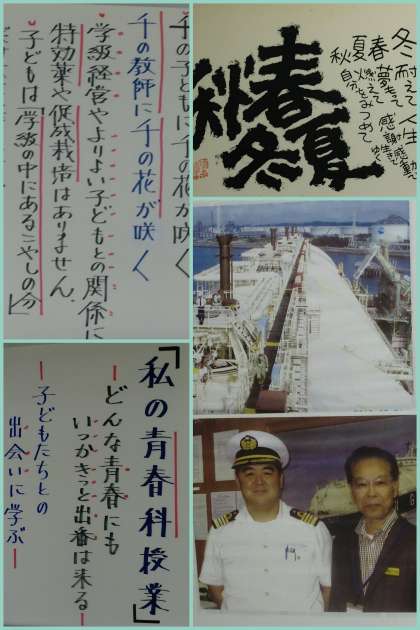 千の子どもに千の花が咲く
千の教師に千の花が咲く
学級経営やよりよい子どもとの関係に
特効薬や促成栽培はありません。
子どもは「学級の中にあるこやしの分」
「私の青春科授業」
ーどんな青春にも
いつかきっと出番は来るー
ー子どもたちとの
出会いに学ぶー
春夏
秋冬
冬 耐えて
春 夢もって
夏 燃えて
秋 自分をみつめて
人生
感謝で生き
感動で
ゆく